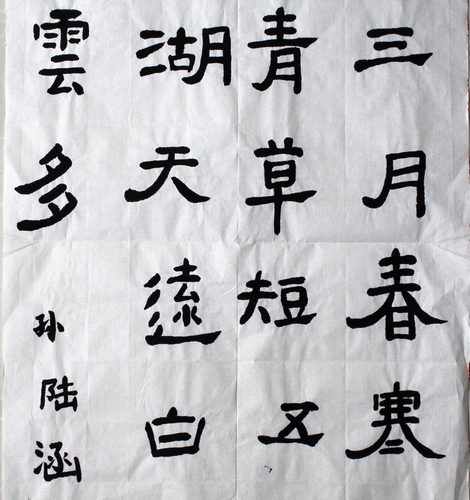 三月春寒
青草短五
湖天遠白
雲多
孙陆涵